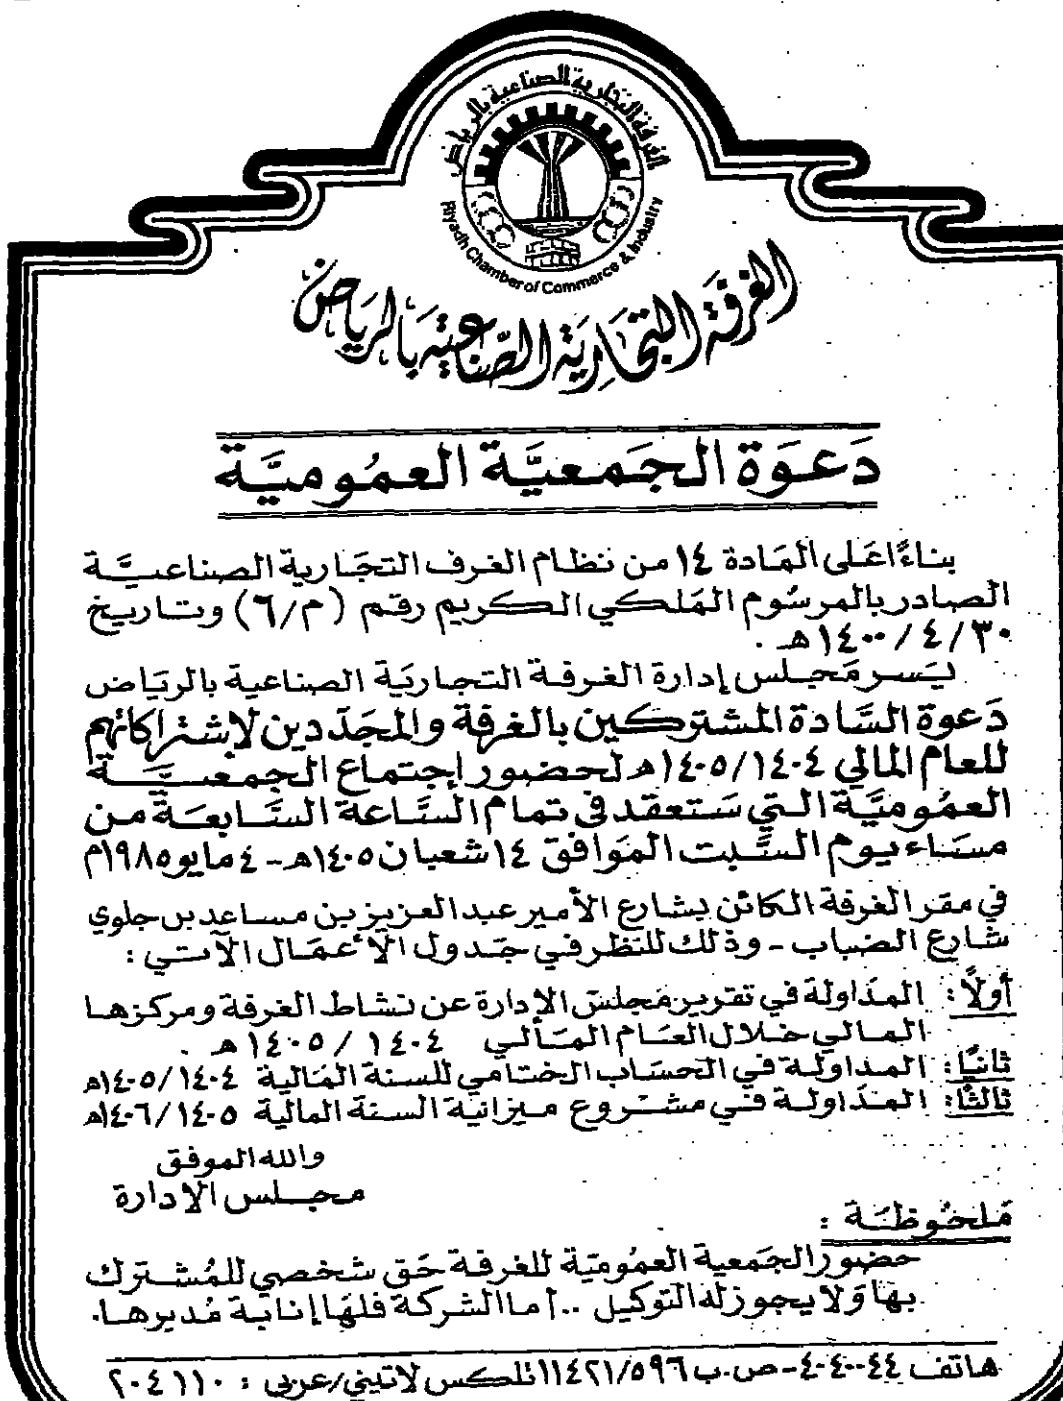 الغرفة التجارية الصناعية بالرياض
Riyadh Chamber of Commerce & Industry
الغرفة التجارية الصناعية بالرياض
دَعوَة الجَمعيَّة العمُوميَّة
بناءً اعَلى المَادة ١٤ من نظام الغرف التجَارية الصناعيَّة
الصادر بالمرسُوم المَلكي الكريم رقم (م/٦) وتاريخ
١٤٠٠/٤/٣٠هـ .
ليَسر مَجلس إدارة الغرفة التجاريَة الصناعية بالريَاض
دَعوة السَّادة المشتركين بالغرفة والمجَددين لإشتراكاتهم
للعام المالي ١٤٠٥/١٤٠٤هـ لحضور إجتماع الجمعيَّة
العمُوميَّة التي سَتعقد في تمام السَّاعة السَّابعَة من
مسَاء يوم السَّبت المَوافق ١٤ شعبان ١٤٠٥هـ - ٤ مايو ١٩٨٥م
في مقر الغرفة الكائن بشارع الأمير عبد العزيز بن مساعد بن جلوي
شارع الضباب - وذلك للنظر في جَدول الأعمَال الآتي :
أولاً: المدَاولة في تقرير مَجلس الإدارة عن نشاط الغرفة ومركزها
المالي خلال العَام المَالي ١٤٠٤ / ١٤٠٥ هـ .
ثانيًا: المداولة في الحسَاب الختامي للسنة المَالية ١٤٠٥/١٤٠٤هـ
ثالثًا: المدَاولة في مشروع ميزانيَة السنة المالية ١٤٠٦/١٤٠٥هـ
والله الموفق
مجلس الإدارة
مَلحُوظَة :
حضور الجَمعية العمُوميَة للغرفة حَق شخصي للمُشترك
بهَا وَلا يجوز له التوكيل .. أما الشركة فلهَا إنابة مُديرها.
هاتف ٤٠٤٠٠٤٤ - ص.ب ١١٤٢١/٥٩٦ تلكس لاتيني/عربي : ٢٠٤١١٠